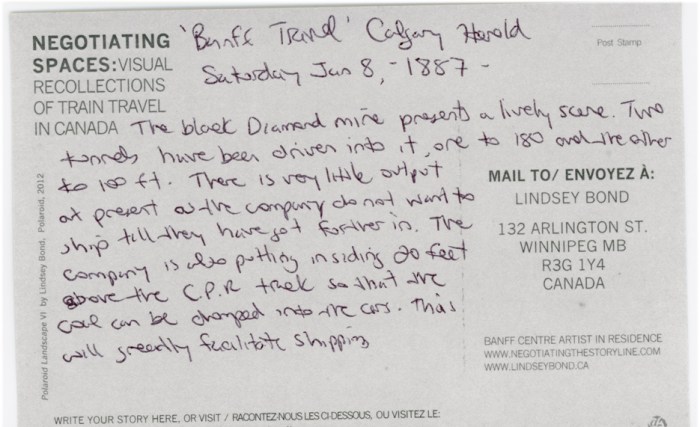 NEGOTIATING
SPACES: VISUAL
RECOLLECTIONS
OF TRAIN TRAVEL
IN CANADA
'Banff Travel' Calgary Herald
Saturday Jan 8, - 1887 -
Post Stamp
The black Diamond mine presents a lively scene. Two
tunnels have been driven into it, one to 180 and the other
to 100 ft. There is very little output
at present as the company do not want to
ship till they have got further in. The
company is also putting in siding 20 feet
above the C.P.R track so that the
coal can be dumped into the cars. This
will greatly facilitate shipping
MAIL TO/ ENVOYEZ À:
LINDSEY BOND
132 ARLINGTON ST.
WINNIPEG MB
R3G 1Y4
CANADA
BANFF CENTRE ARTIST IN RESIDENCE
WWW.NEGOTIATINGTHESTORYLINE.COM
WWW.LINDSEYBOND.CA
Polaroid Landscape VI by Lindsey Bond, Polaroid, 2012
WRITE YOUR STORY HERE, OR VISIT / RACONTEZ-NOUS LES CI-DESSOUS, OU VISITEZ LE: